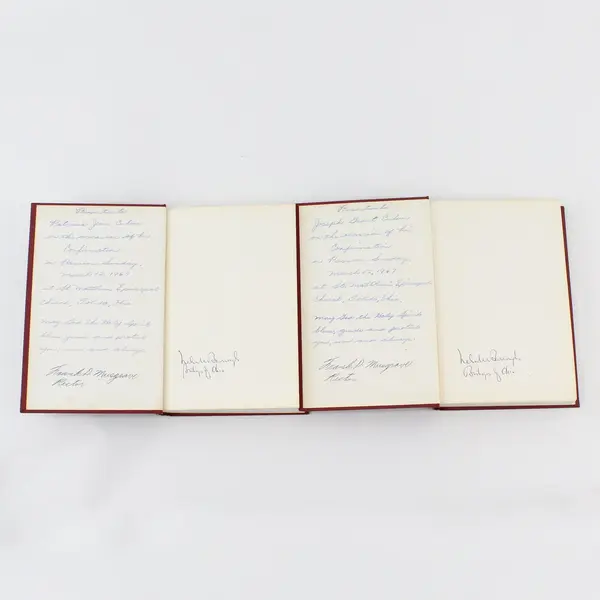 Presented to
Patricia Jean
on the occasion of her
Confirmation
on Passion Sunday,
March 12, 1967
at St. Matthew's Episcopal
Church, Toledo, Ohio.
May God the Holy Spirit
bless, guide and protect
you, now and always.
Frank D. Musgrave
Rector
Bishop of Ohio
Presented to
Joseph Grant
on the occasion of his
Confirmation
on Passion Sunday,
March 12, 1967
at St. Matthew's Episcopal
Church, Toledo, Ohio.
May God the Holy Spirit
bless, guide and protect
you, now and always.
Frank D. Musgrave
Rector
Bishop of Ohio